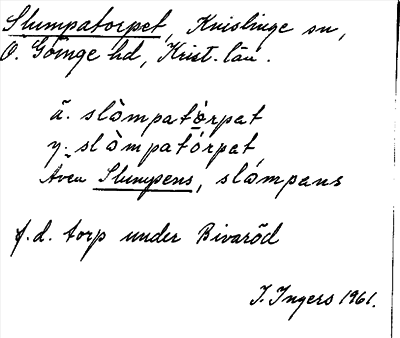 Slumpatorpet, Knislinge sn,
Ö. Göinge hd, Krist. län.
ä. slòmpatòrpat
y. slòmpatórpat
Även Slumpens, slómpans
f.d. torp under Bivaröd
I. Ingers 1961.